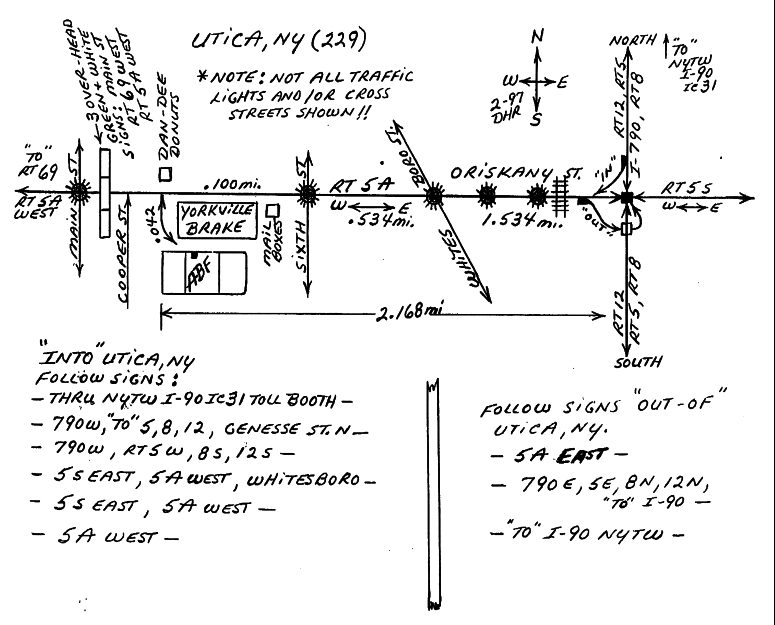 UTICA, NY (229)
*NOTE: NOT ALL TRAFFIC
LIGHTS AND/OR CROSS
STREETS SHOWN!!
3 OVER-HEAD
GREEN + WHITE
GRENS: MAIN ST
SIGNS: RT 69 WEST
RT 5A WEST
DAN-DEE
DONUTS
N
W E
S
2-97
DHR
NORTH
"TO"
NYTW
I-90
IC31
RT12, RT5,
I-790, RT8
"TO"
RT 69
RT 5A
WEST
MAIN ST
COOPER ST.
.100mi.
.042
YORKVILLE
BRAKE
MAIL
BOXES
ABF
SIXTH ST
RT 5A
W E
.534mi.
WHITES BORO ST.
ORISKANY ST.
1.534mi.
"IN"
"OUT"
RT 5S
W E
2.168mi
RT12
RT5, RT8
SOUTH
"INTO" UTICA, NY
FOLLOW SIGNS:
- THRU NYTW I-90 IC31 TOLL BOOTH -
- 790W, "TO" 5, 8, 12, GENESSE ST. N -
- 790W, RT5W, 8S, 12S -
- 5S EAST, 5A WEST, WHITESBORO -
- 5S EAST, 5A WEST -
- 5A WEST -
FOLLOW SIGNS "OUT-OF"
UTICA, NY.
- 5A EAST -
- 790E, 5E, 8N, 12N,
"TO" I-90 -
- "TO" I-90 NYTW -